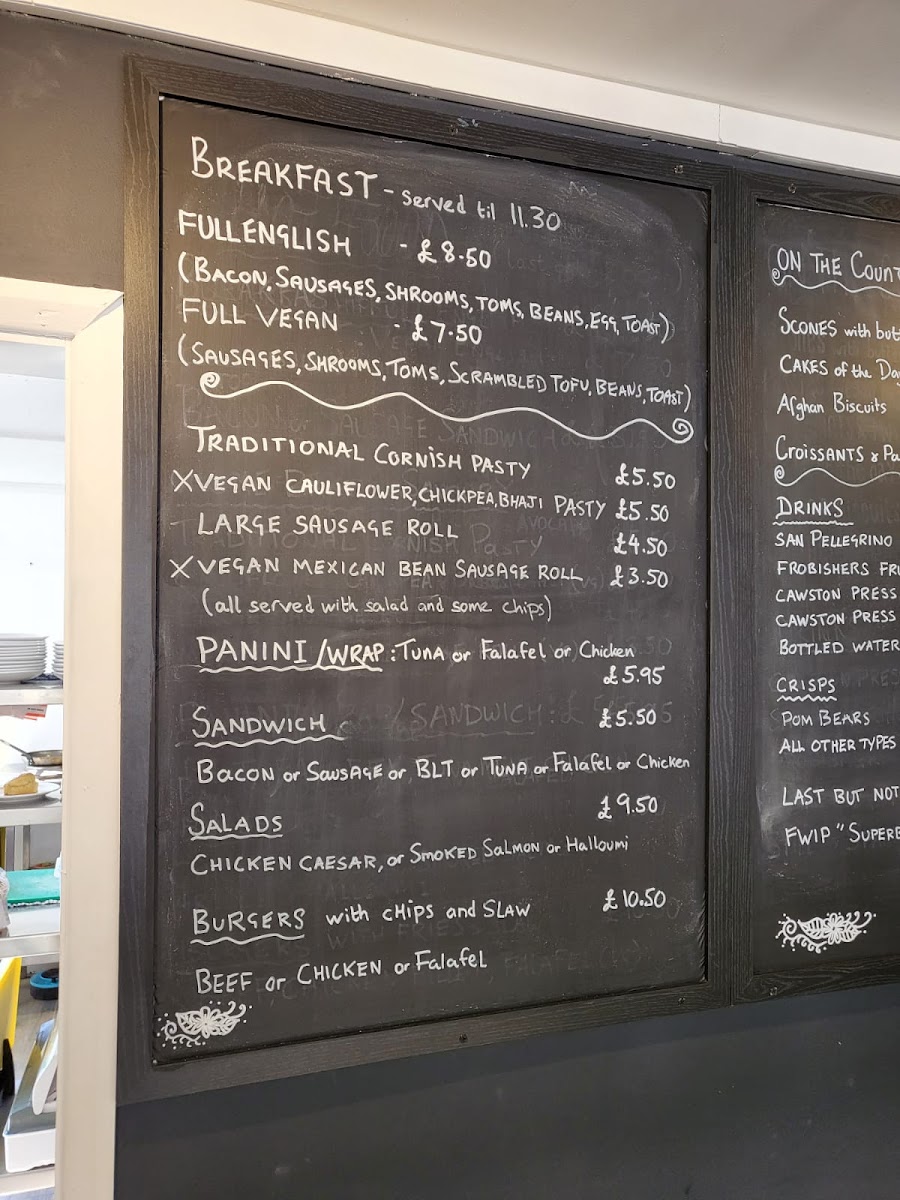 BREAKFAST - served til 11.30
FULL ENGLISH - £8.50
(BACON, SAUSAGES, SHROOMS, TOMS, BEANS, EGG, TOAST)
FULL VEGAN - £7.50
(SAUSAGES, SHROOMS, TOMS, SCRAMBLED TOFU, BEANS, TOAST)
TRADITIONAL CORNISH PASTY £5.50
X VEGAN CAULIFLOWER, CHICKPEA, BHAJI PASTY £5.50
LARGE SAUSAGE ROLL £4.50
X VEGAN MEXICAN BEAN SAUSAGE ROLL £3.50
(all served with salad and some chips)
PANINI/WRAP: TUNA or Falafel or Chicken
£5.95
SANDWICH £5.50
BACON or SAUSAGE or BLT or TUNA or Falafel or Chicken
SALADS £9.50
CHICKEN CAESAR, or SMOKED SALMON or Halloumi
BURGERS with CHIPS and SLAW £10.50
BEEF or CHICKEN or Falafel
ON THE
SCONES with
CAKES of the
Afghan Biscuits
CROISSANTS &
DRINKS
SAN PELLEGRINO
FROBISHERS
CAWSTON PRESS
CAWSTON PRESS
BOTTLED WATER
CRISPS
POM BEARS
ALL OTHER TYPES
LAST BUT NOT
FWIP "